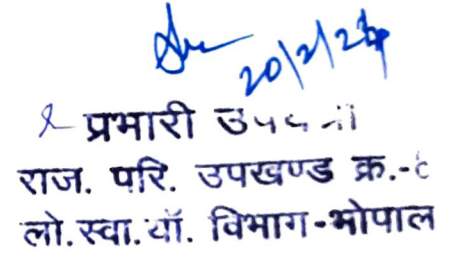 20/2/26
प्रभारी
राज. परि. उपखण्ड क्र.-
लो.स्वा.यॉ. विभाग-भोपाल